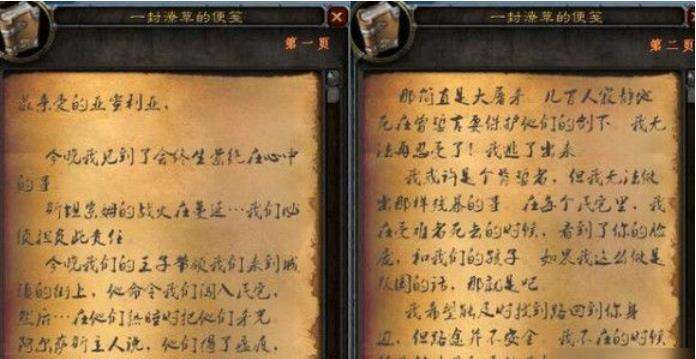 一封潦草的便笺
第一页
最亲爱的亚蜜利亚，
今晚我见到了会终生萦绕在心中
的景
斯坦索姆的战火在蔓延…我们必
须担负此责任
今晚我们的王子带领我们来到城
镇的街上，他命令我们闯入民宅，
然后…在他们熟睡时把他们屠光
阿尔萨斯主人说，他们得了瘟疫，
一封潦草的便笺
第二页
那简直是大屠杀 几百人寂静地
死在曾誓言要保护他们的剑下 我无
法再忍受了！我逃了出来
我或许是个背誓者，但我无法做
出那样残暴的事 在每个民宅里，我
在受难者死去的时候，看到了你的脸
庞，和我们的孩子 如果我这么做是
叛国的话，那就是吧
我希望能及时找到路回到你身
边，但路途并不安全 我不在的时候